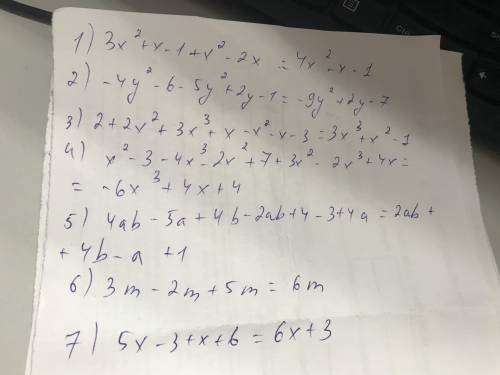 1) 3x² + x - 1 + x² - 2x = 4x² - x - 1
2) -4y² - 6 - 5y² + 2y - 1 = -9y² + 2y - 7
3) 2 + 2x² + 3x³ + x - x² - x - 3 = 3x³ + x² - 1
4) x² - 3 - 4x³ - 2x² + 7 + 3x² - 2x³ + 4x =
= -6x³ + 4x + 4
5) 4ab - 5a + 4b - 2ab + 4 - 3 + 4a = 2ab +
+ 4b - a + 1
6) 3m - 2m + 5m = 6m
7) 5x - 3 + x + 6 = 6x + 3